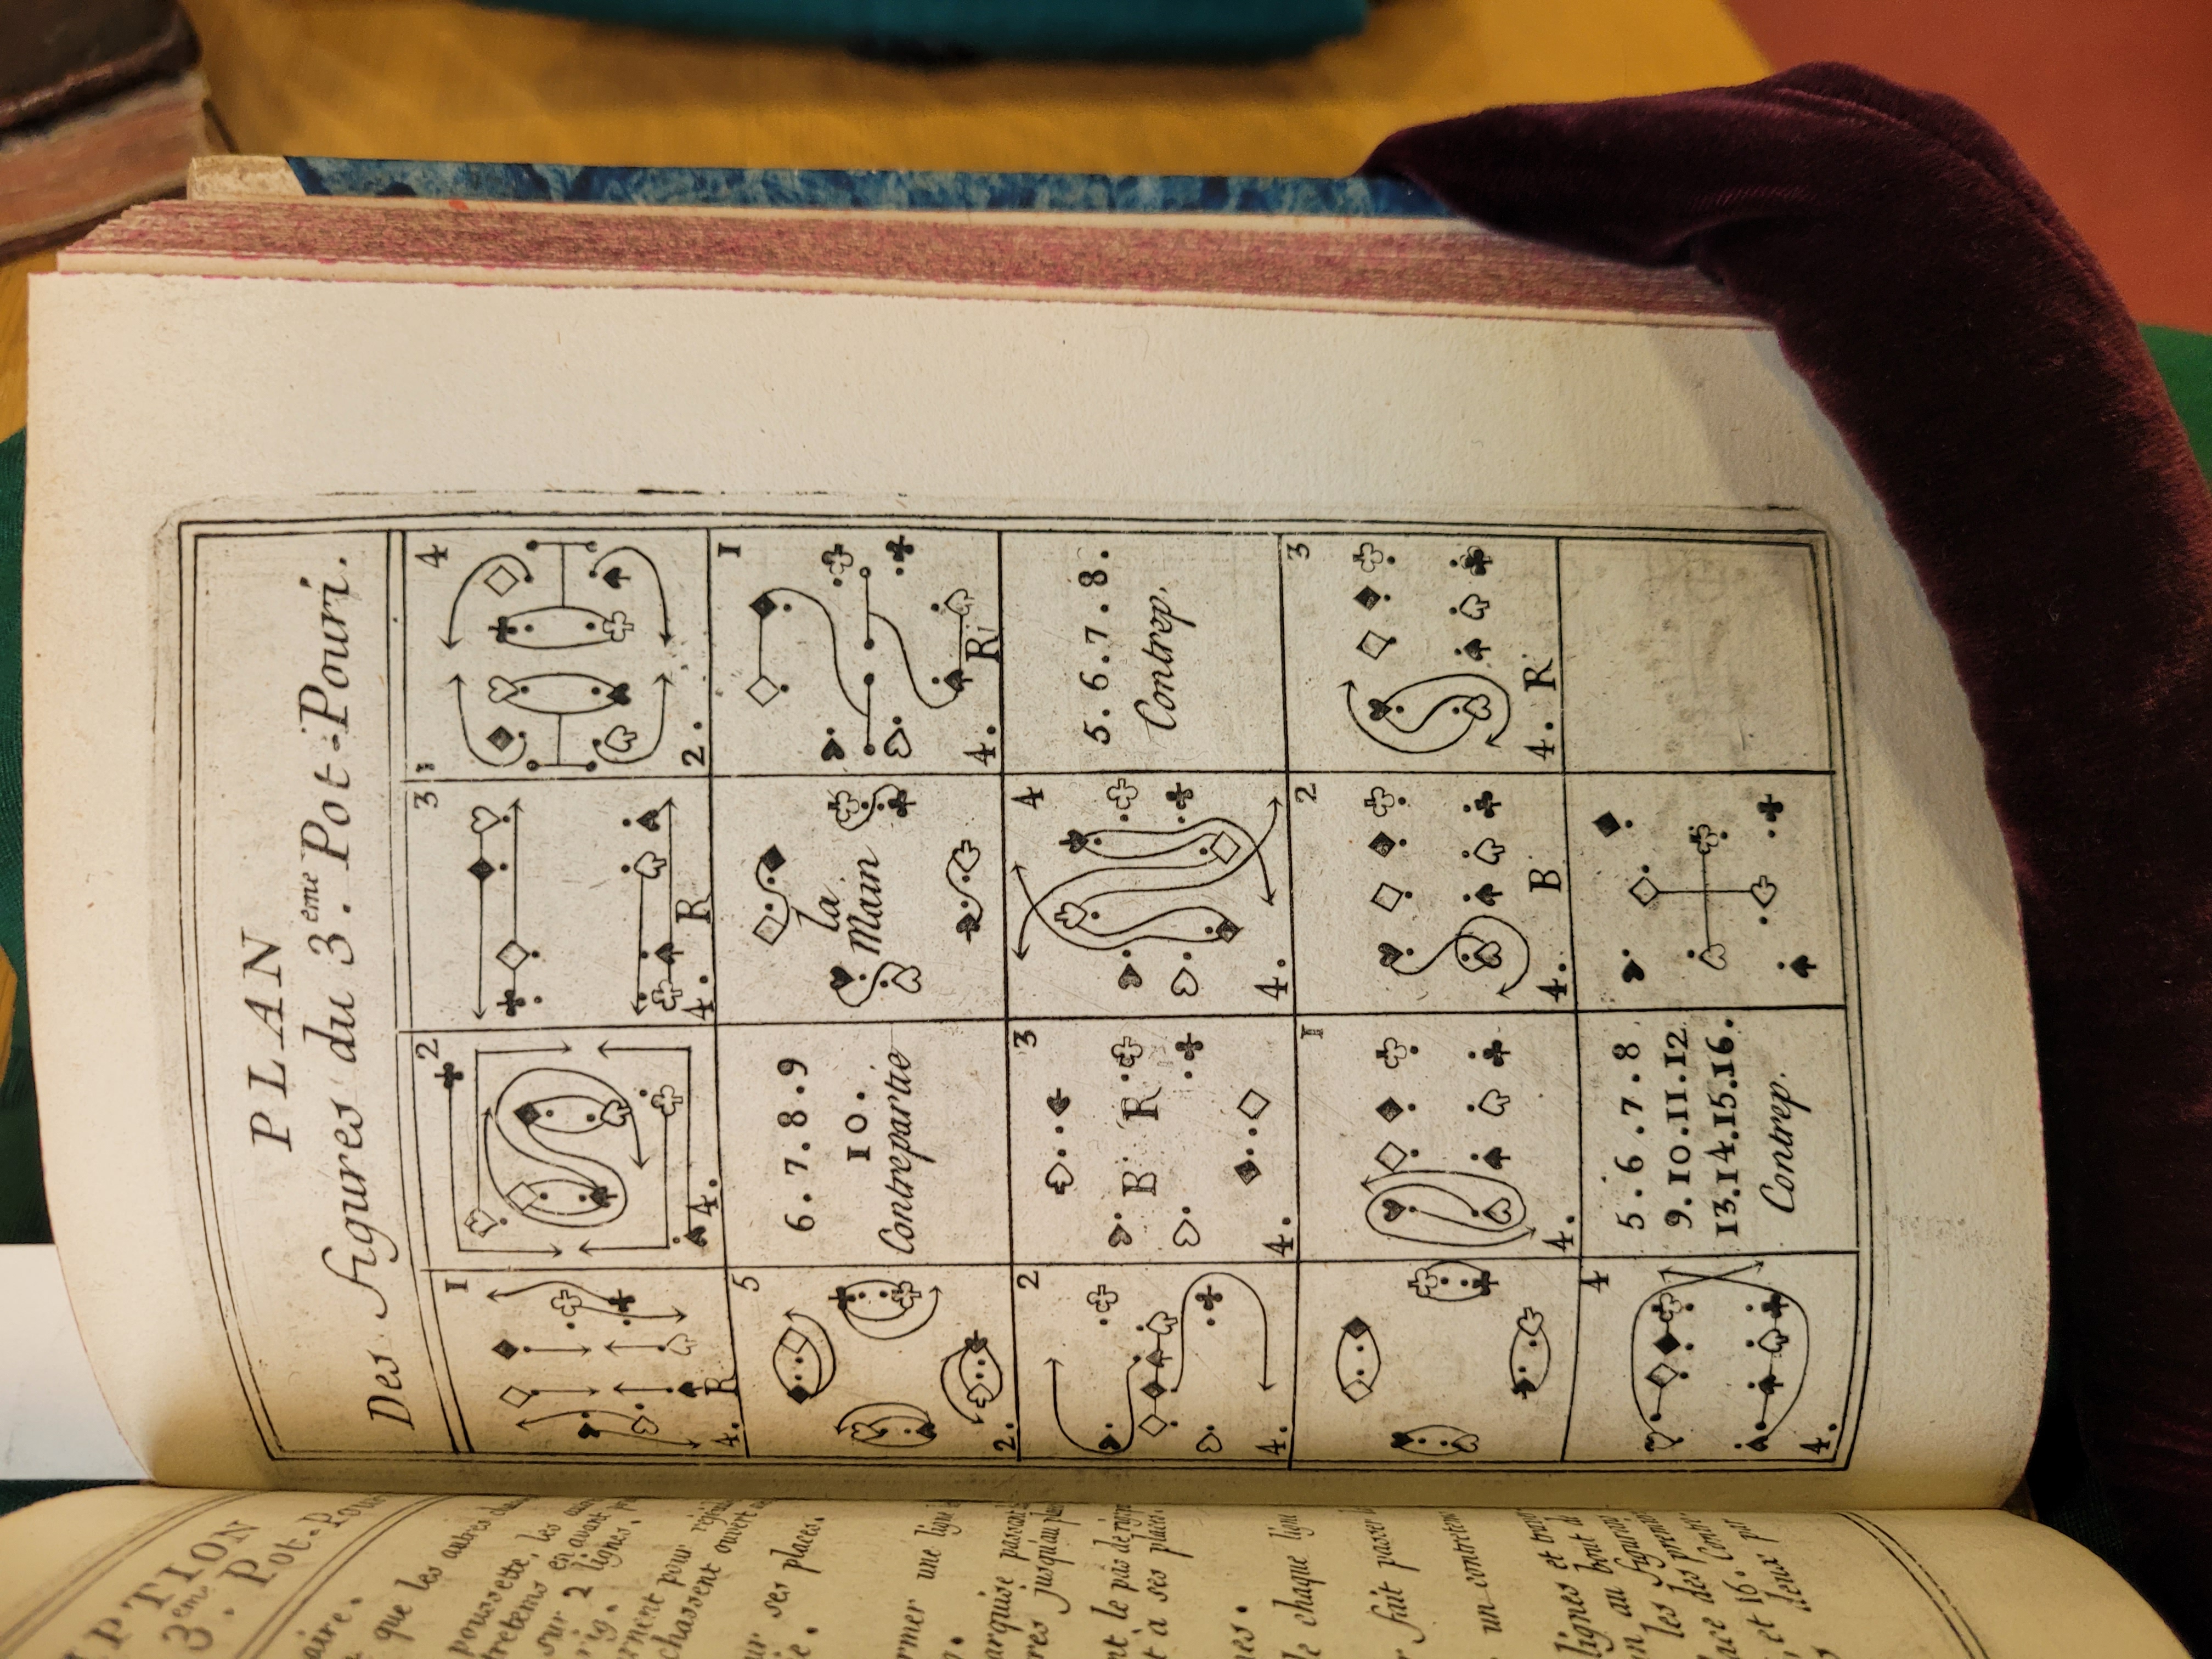 PTION
3.eme Pot-Pou
aire.
que les autres
poussette, les
en avant
sur 2 lignes.
rig.
pour
chassent ouvert
ur ses places.
ie.
rmer une lign
arquise passant
res jusqu'au
nt le pas de
t à ses places.
nes.
e chaque lign
fait passer
un contretem
lignes et
au bout d
au figur
les premie
des Contr
et 16.
deux
PLAN
Des figures du 3.eme Pot-Pouri.
1
4. R
2
4.
3
4. R
4
2.
5
2.
6.7.8.9
10.
Contrepartie
la
Main
1
4. R
2
4.
3
B R
4.
4
4.
5.6.7.8.
Contrep.
1
4.
2
4. B
3
4. R
4
4.
5.6.7.8
9.10.11.12
13.14.15.16.
Contrep.